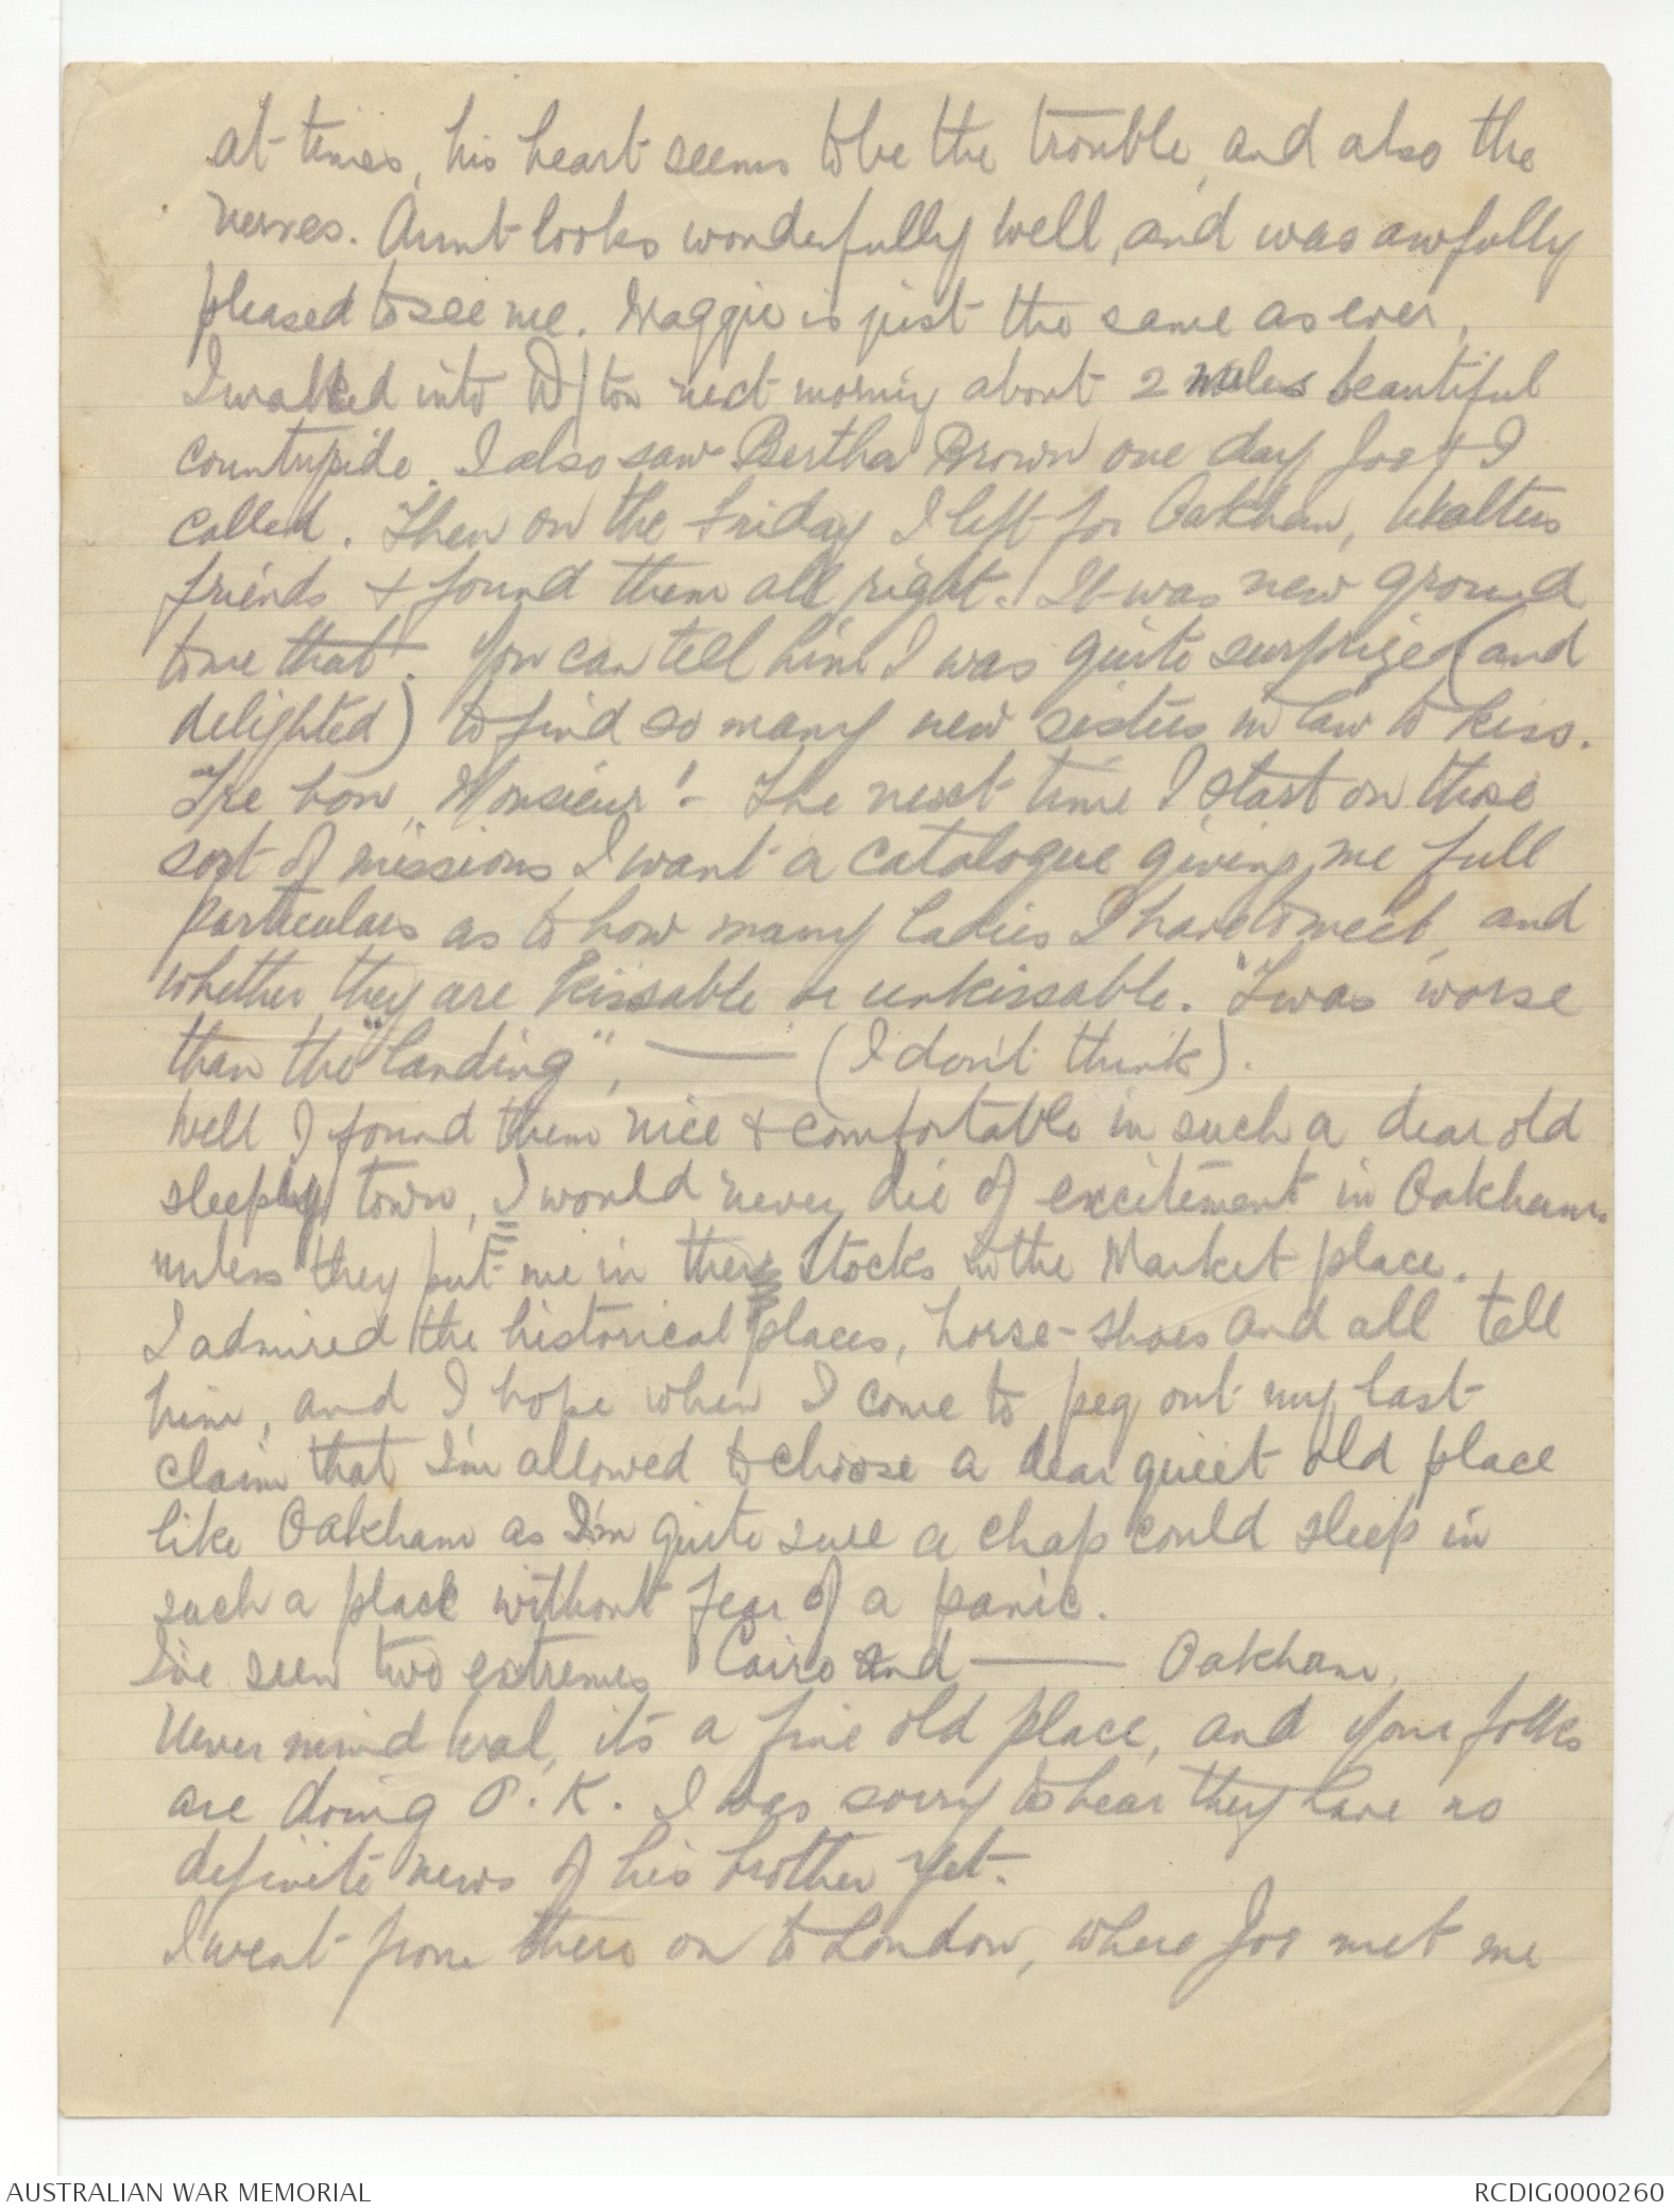 at times, his heart seems to be the trouble, and also the
nerves. Aunt looks wonderfully well, and was awfully
pleased to see me. Maggie is just the same as ever,
I walked into D/ton next morning about 2 miles beautiful
countryside. I also saw Bertha Brown one day Joe & I
called. Then on the Friday I left for Oakham, Walters
friends & found them all right. It was new ground
to me that. You can tell him I was quite surprized (and
delighted) to find so many new sisters in law to kiss.
Tre bon, Monsieur! - The next time I start on those
sort of missions I want a catalogue giving me full
particulars as to how many ladies I have to meet, and
whether they are kissable or unkissable. 'Twas worse
than the "landing", — (I don't think).
Well I found them nice & comfortable in such a dear old
sleepy town, I would never die of excitement in Oakham.
unless they put me in the stocks in the Market place.
I admired the historical places, horse-shoes and all tell
him, and I hope when I come to peg out my last
claim that I'm allowed to choose a dear quiet old place
like Oakham as I'm quite sure a chap could sleep in
such a place without fear of a panic.
I've seen two extremes Cairo and — Oakham,
Never mind Wal, its a fine old place, and your folks
are doing O.K. I was sorry to hear they have no
definite news of his brother yet.
I went from there on to London, where Joe met me
AUSTRALIAN WAR MEMORIAL
RCDIG0000260